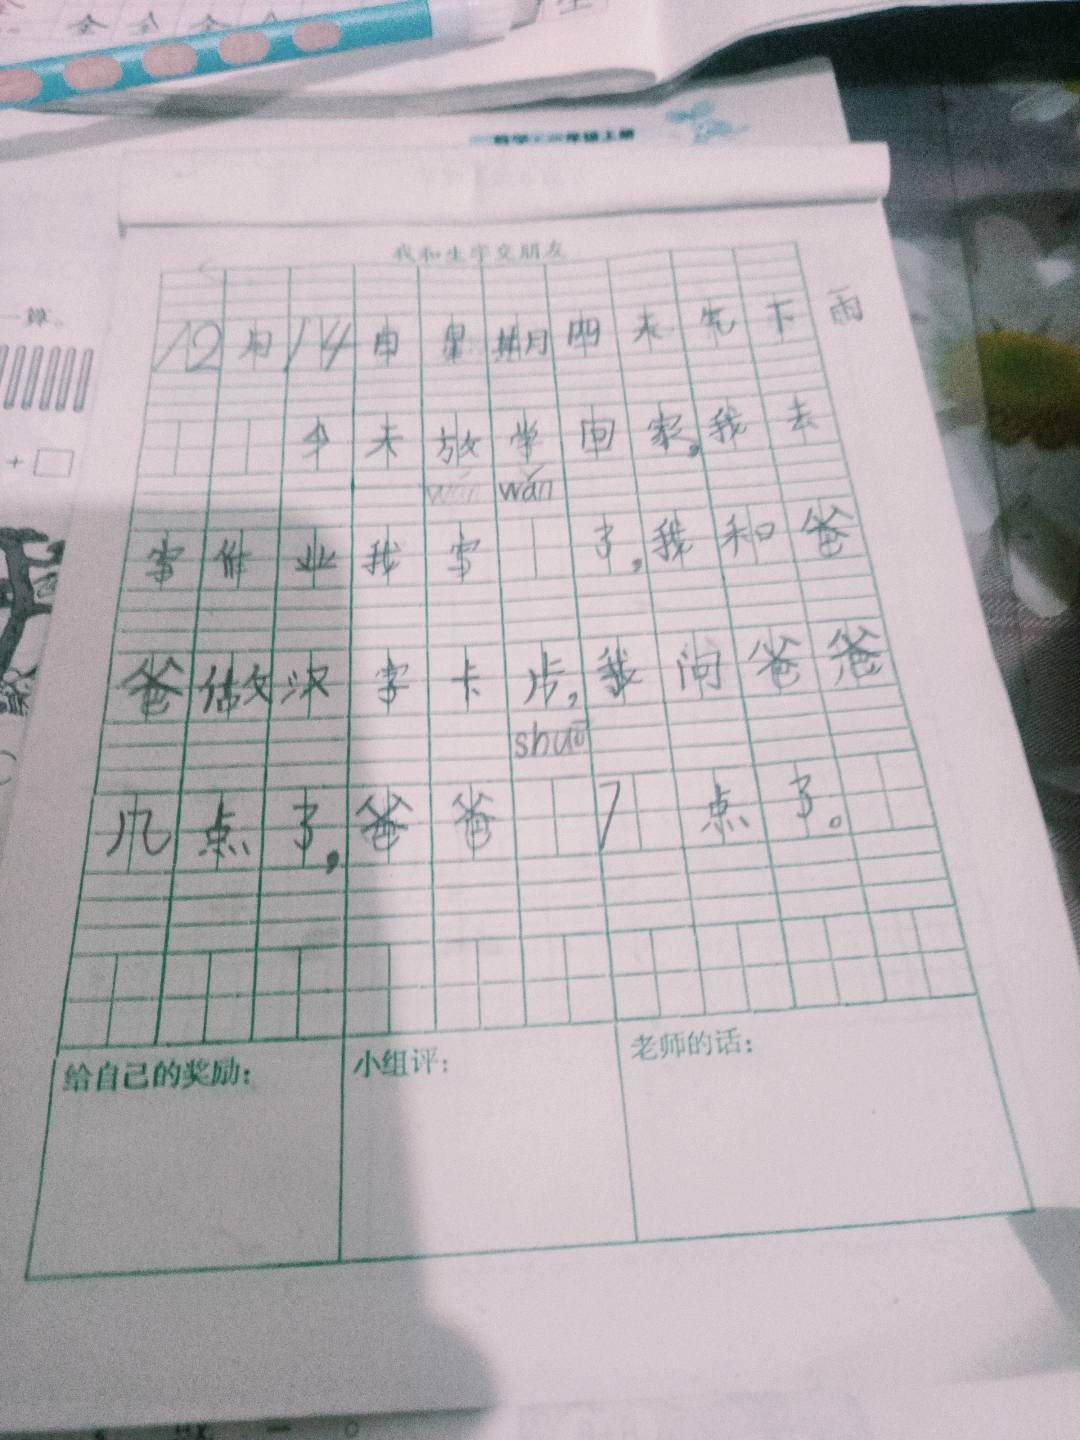 我和生字交朋友
12月14日星期四天气下雨
今天放学回家,我去
wán wǎn
写作业我写 了,我和爸
爸做汉字卡片,我问爸爸
shuō
几点了,爸爸 7点了。
给自己的奖励:
小组评:
老师的话: